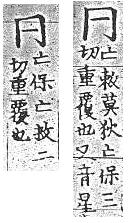 𠔼
亡救莫狄亡保三
切重覆也又音星
𠔼
亡保亡救二
切重覆也